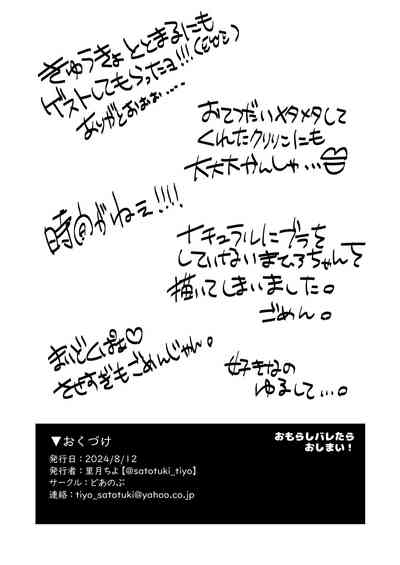 きゅうきょ ととまるにも
ゲストしてもらったヨ!!!(ピザミ)
ありがとおぉぉ…
おてつだいメタメタして
くれたクリリンにも
大大大かんしゃ…
時間がねェ!!!!
ナチュラルにブラを
していないまひろちゃんを
描いてしまいました。
ごめん。
まいどくぱぁ♡
させすぎもごめんじゃん。
好きなの
ゆるして…。
▼おくづけ
おもらしバレたら
おしまい！
発行日：2024/8/12
発行者：里月ちよ【@satotuki_tiyo】
サークル：どあのぶ
連絡：tiyo_satotuki@yahoo.co.jp